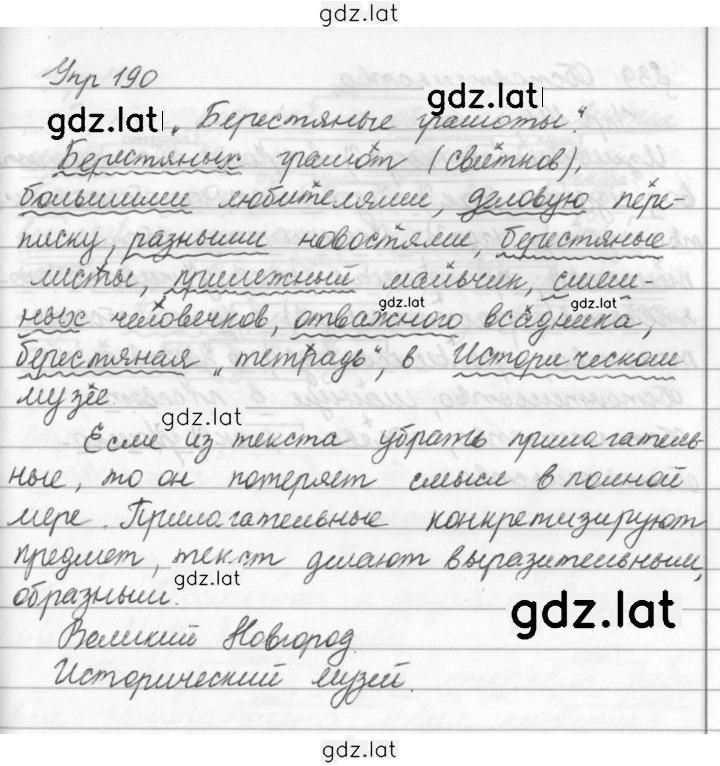 gdz.lat
Упр 190
gdz.lat
gdz.lat
„Берестяные грамоты."
Берестяных грамот (свитков),
большими любителями, деловую пере-
писку, разными новостями, берестяные
листы, прилежный мальчик, смеш-
gdz.lat
gdz.lat
ных человечков, отважного всадника,
берестяная „тетрадь", в Историческом
музее.
gdz.lat
Если из текста убрать прилагатель-
ные, то он потеряет смысл в полной
мере. Прилагательные конкретизируют
предмет, текст делают выразительным,
gdz.lat
образным.
gdz.lat
Великий Новгород.
Исторический музей.
gdz.lat